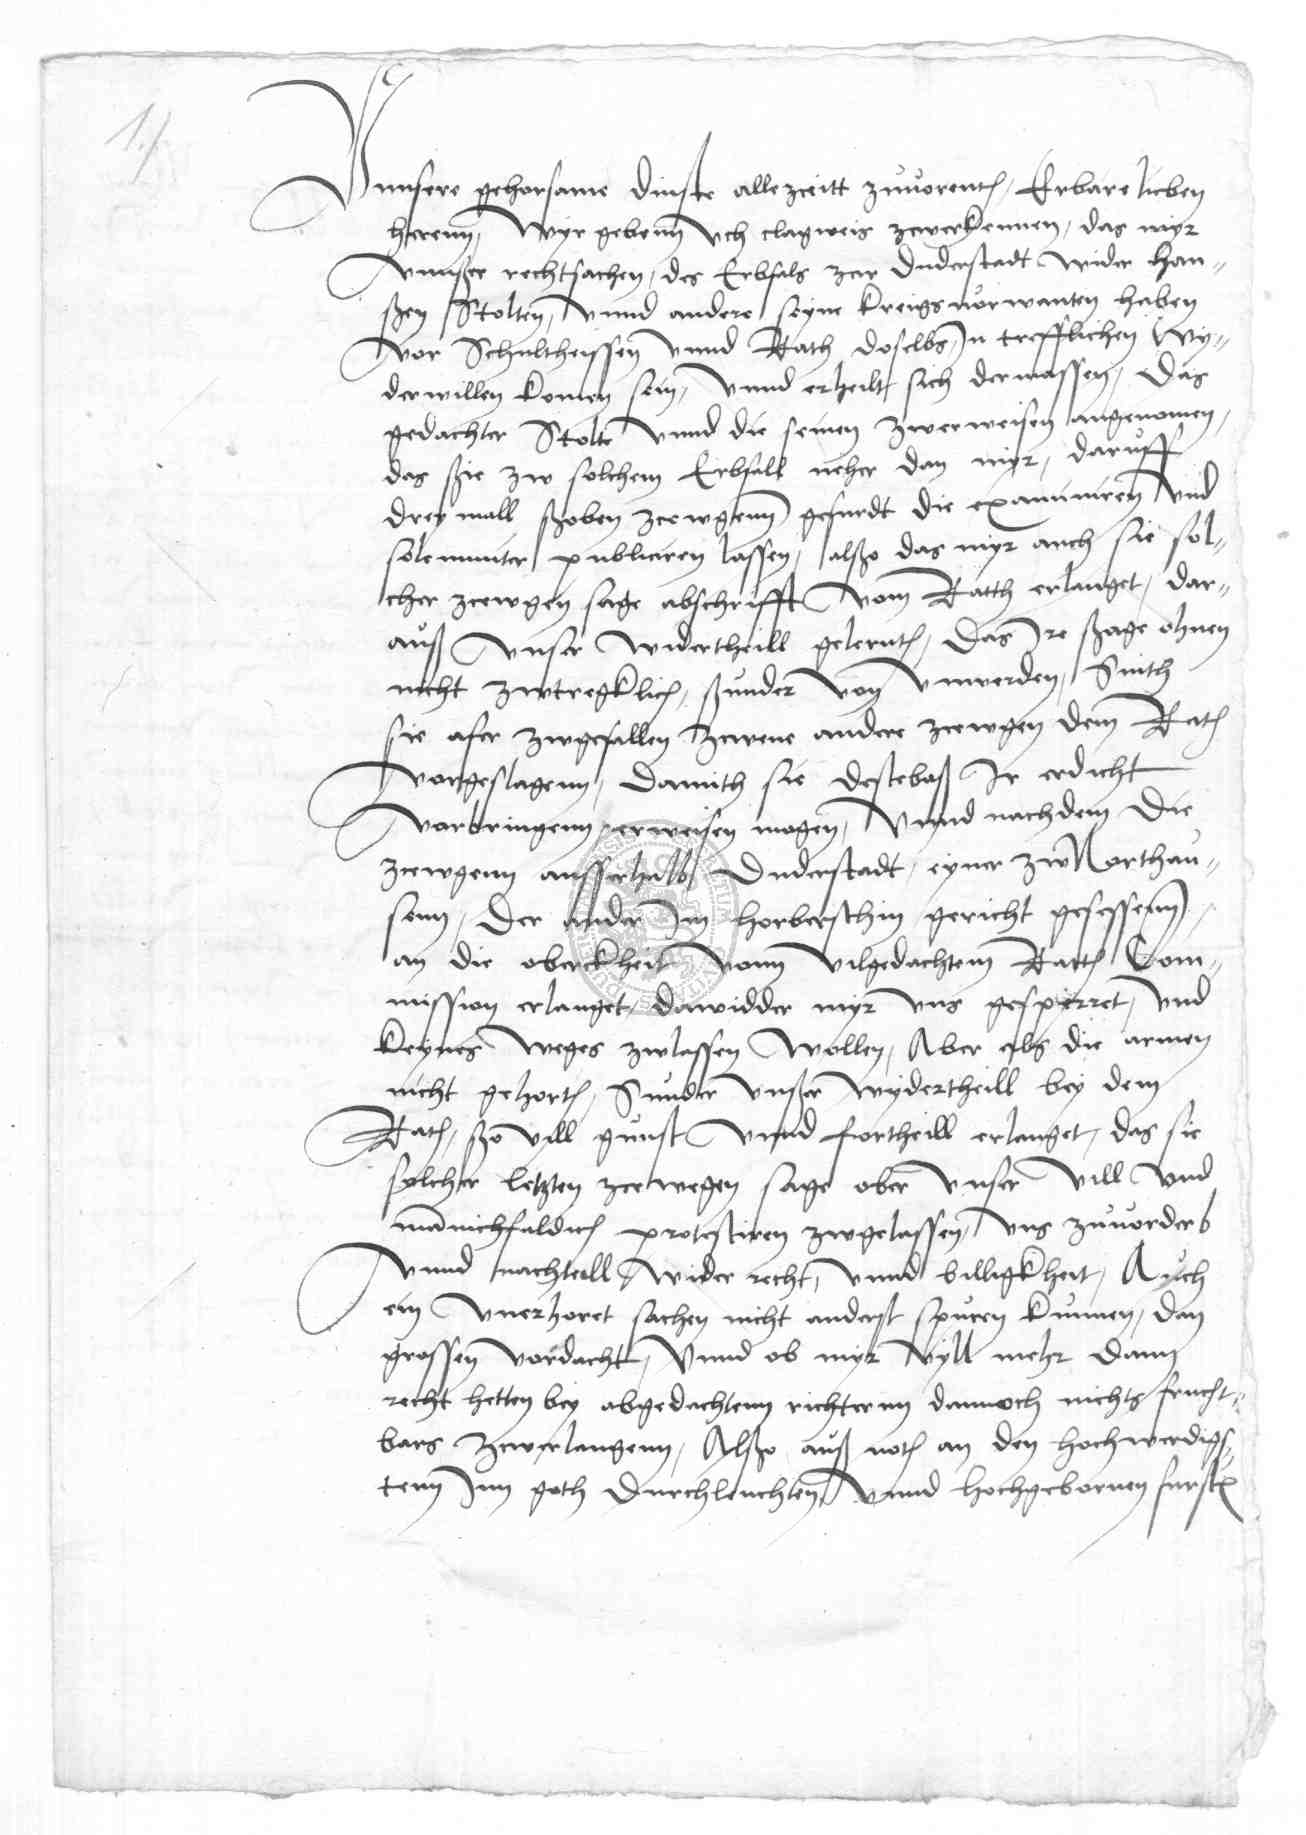 1./
Vnnsere gehorsame dinste alle zceitt zuuorentt, Erbare lieben
herenn, Wyr gebenn vch clagweis zcwerkennen, das myr
vnnßer rechtsachen, des Erbfals zcw Duderstadt wider Han-
ßen Stolten, vnnd andere seyne kreigsuorwanten haben
vor Schultheissen vnnd Rath doselbs In trefflichen Wy-
derwillen komen sein, vnnd erheilt sich dermassen, das
gedachter Stolte vnnd die seinen zwerweisen angenomen,
das ßie zw solchem Erbfall neher dan myr, daruff
drey mall ßoben zcewgenn gefurdt die examiniren vnd
solemniter publiciren lassen, alßo das myr auch sie sol-
cher zcewgen sage abschrifft vom Ratth erlanget, dar-
auß vnser widertheill gelerntt, das Ire ßage ohnen
nicht zwtregklich, ßunder von vnwerden, Sinth
sie afer zwgefallen zcwene andere zcewgen dem Rath
vorgeslagenn, damith sie destebaß Ir erdicht
vorbringenn erweisen mogen, vnnd nachdem die
zcewgenn ausserhalb Duderstadt, eyner zw Northau-
senn, der ander Im gericht gesessenn
an die oberckheit vonn vilgedachtem Rath Com-
mission erlanget, dawidder myr vns gesperret, vnd
keynes weges zwlassen wollen, Aber als die armen
nicht gehort, Sunder vnßer wydertheill bey dem
Rath, ßo vill gunst vnnd fortheill erlanget, das sie
solcher letzten zcewegen sage ober vnser vill vnd
manichfaldich protestiren zwgelassen, vns zuuorderb
vnnd nachteill wider recht, vnnd billigkheit, Auch
ein vnerhoret sachen nicht anderst spuren kunnen, dan
grossen vordacht, vnnd ob myr vyll mehr dann
recht hetten bey abgedachtenn richternn dannoch nichts frucht-
bars zcwerlangenn, Alßo auß noth an den hochwerdigs-
tenn Inn goth durchleuchten, vnnd hochgebornen furst